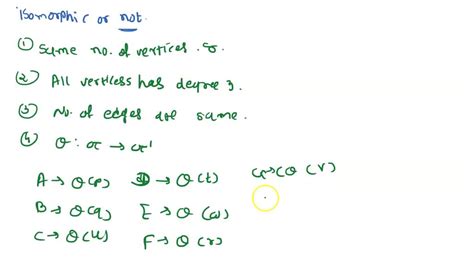 isomorphic or not.
① Same no. of vertices. 8.
② All vertices has degree 3.
③ No. of edges are same.
④ θ: G → G'
A → θ(p) D → θ(t) G → θ(v)
B → θ(q) E → θ(w)
C → θ(u) F → θ(r)